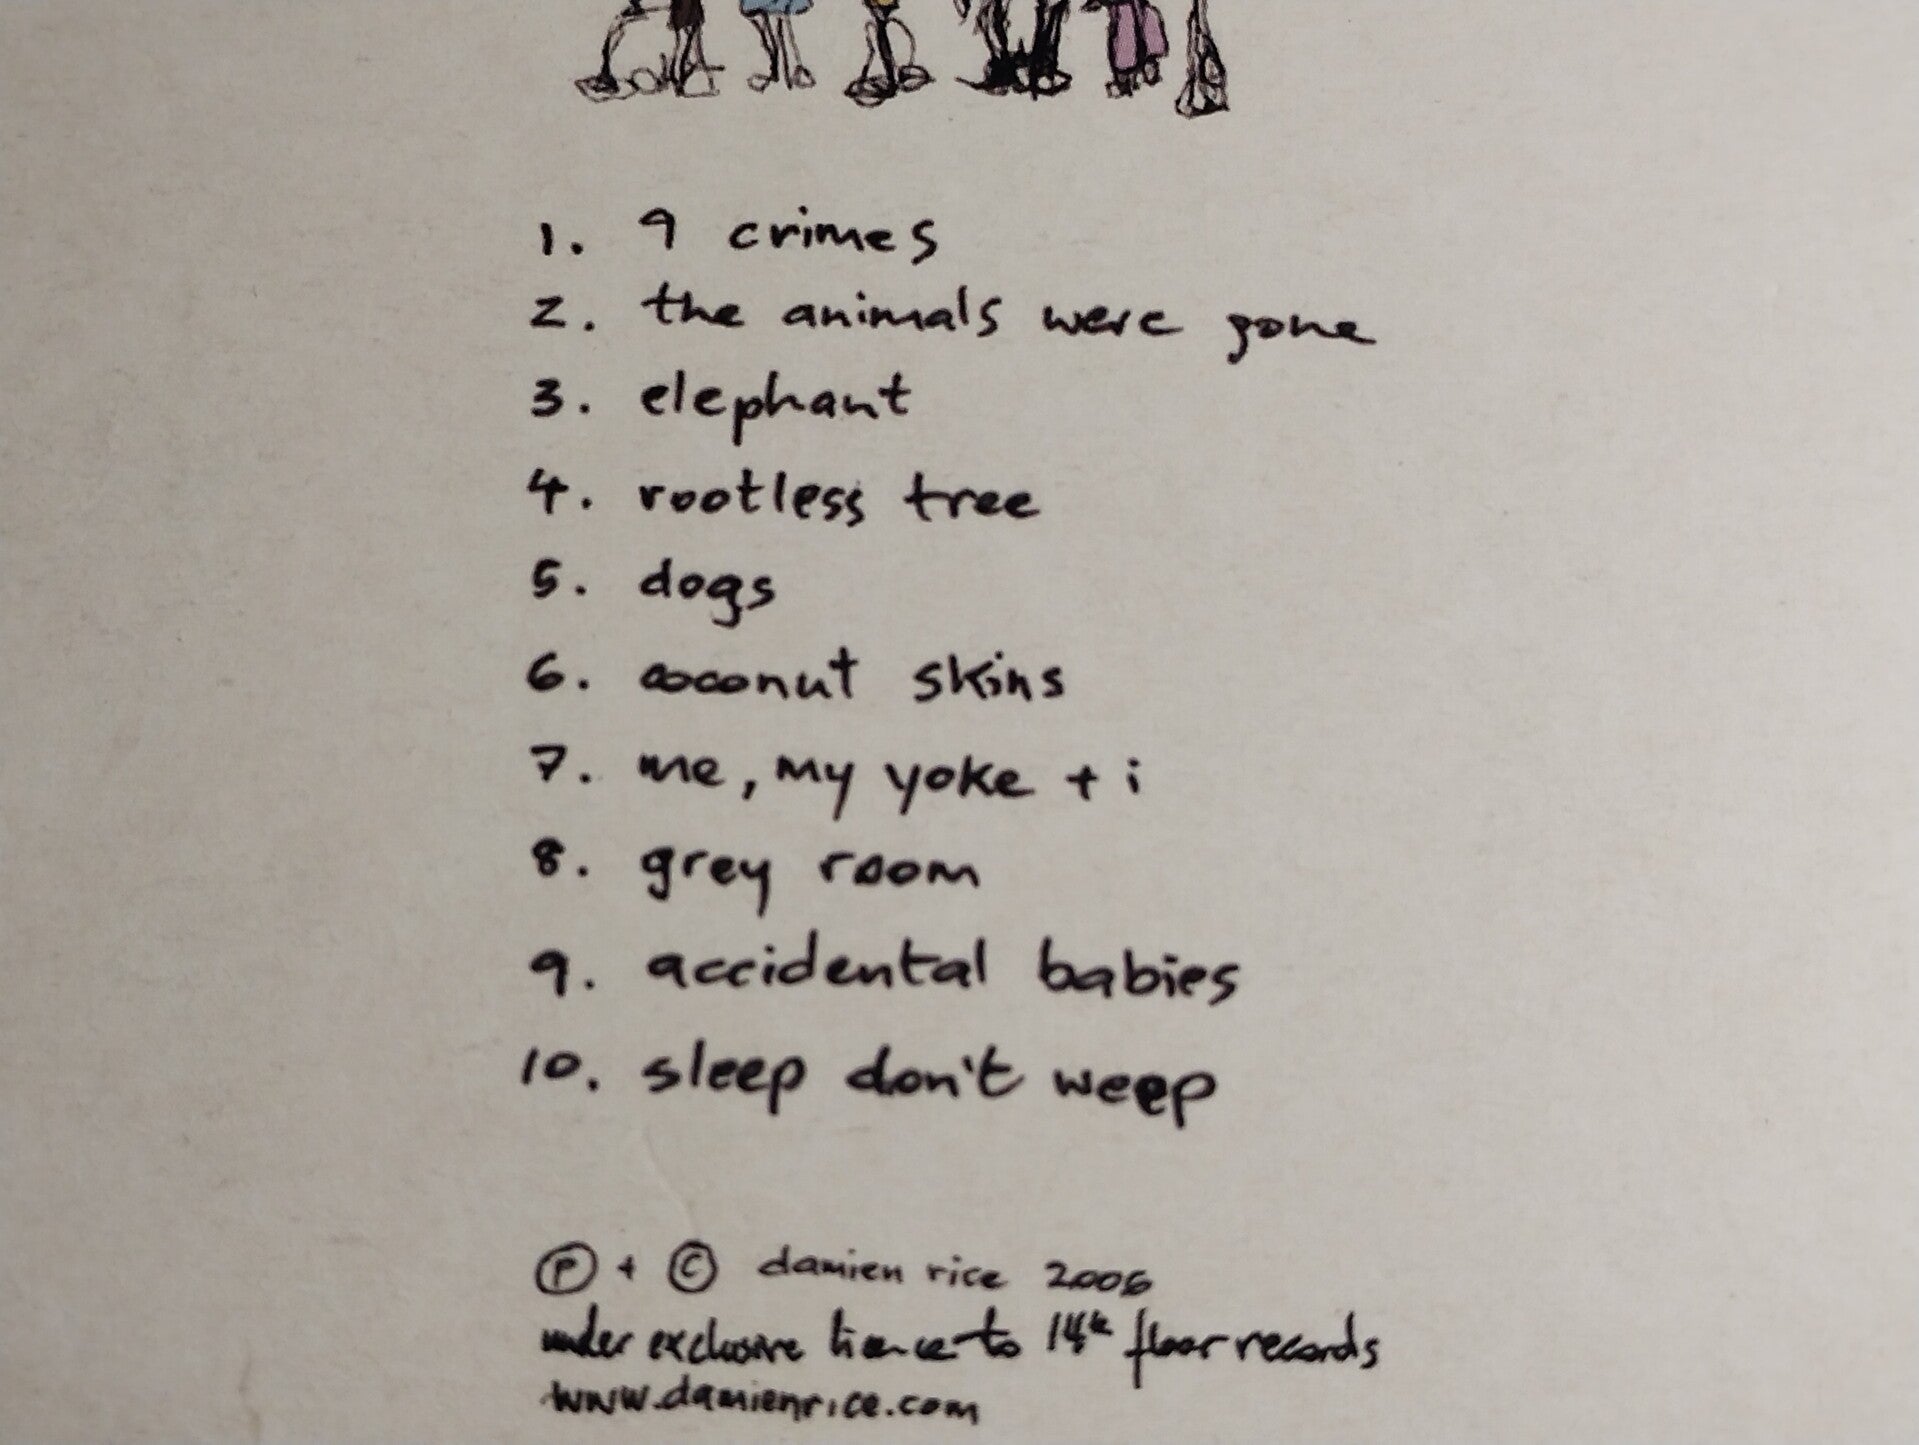 1. 9 crimes
2. the animals were gone
3. elephant
4. rootless tree
5. dogs
6. coconut skins
7. me, my yoke + i
8. grey room
9. accidental babies
10. sleep don't weep
Ⓟ + © damien rice 2006
under exclusive licence to 14th floor records
www.damienrice.com